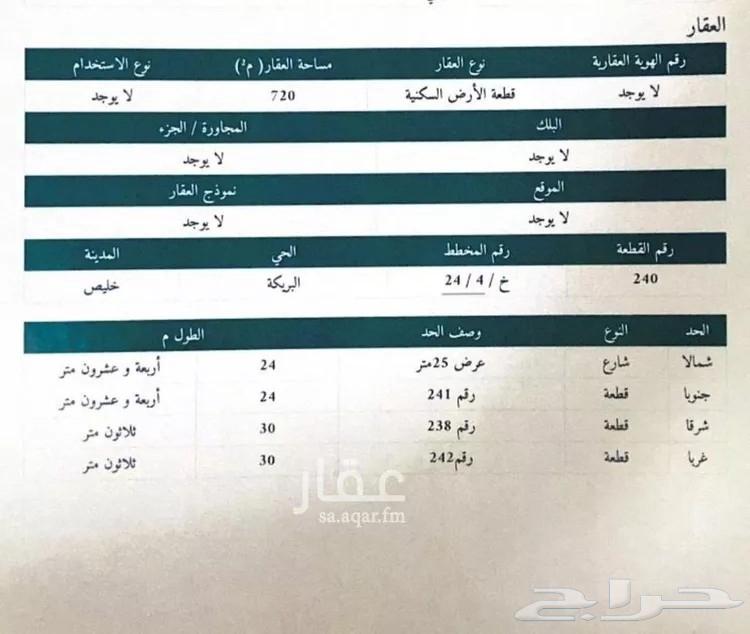 العقار
رقم الهوية العقارية نوع العقار مساحة العقار( م²) نوع الاستخدام
لا يوجد قطعة الأرض السكنية 720 لا يوجد
البلك المجاورة / الجزء
لا يوجد لا يوجد
الموقع نموذج العقار
لا يوجد لا يوجد
رقم القطعة رقم المخطط الحي المدينة
240 خ / 4 / 24 البريكة خليص
الحد النوع وصف الحد الطول م
شمالا شارع عرض 25متر 24 أربعة و عشرون متر
جنوبا قطعة رقم 241 24 أربعة و عشرون متر
شرقا قطعة رقم 238 30 ثلاثون متر
غربا قطعة رقم242 30 ثلاثون متر
عقار
sa.aqar.fm
حراج